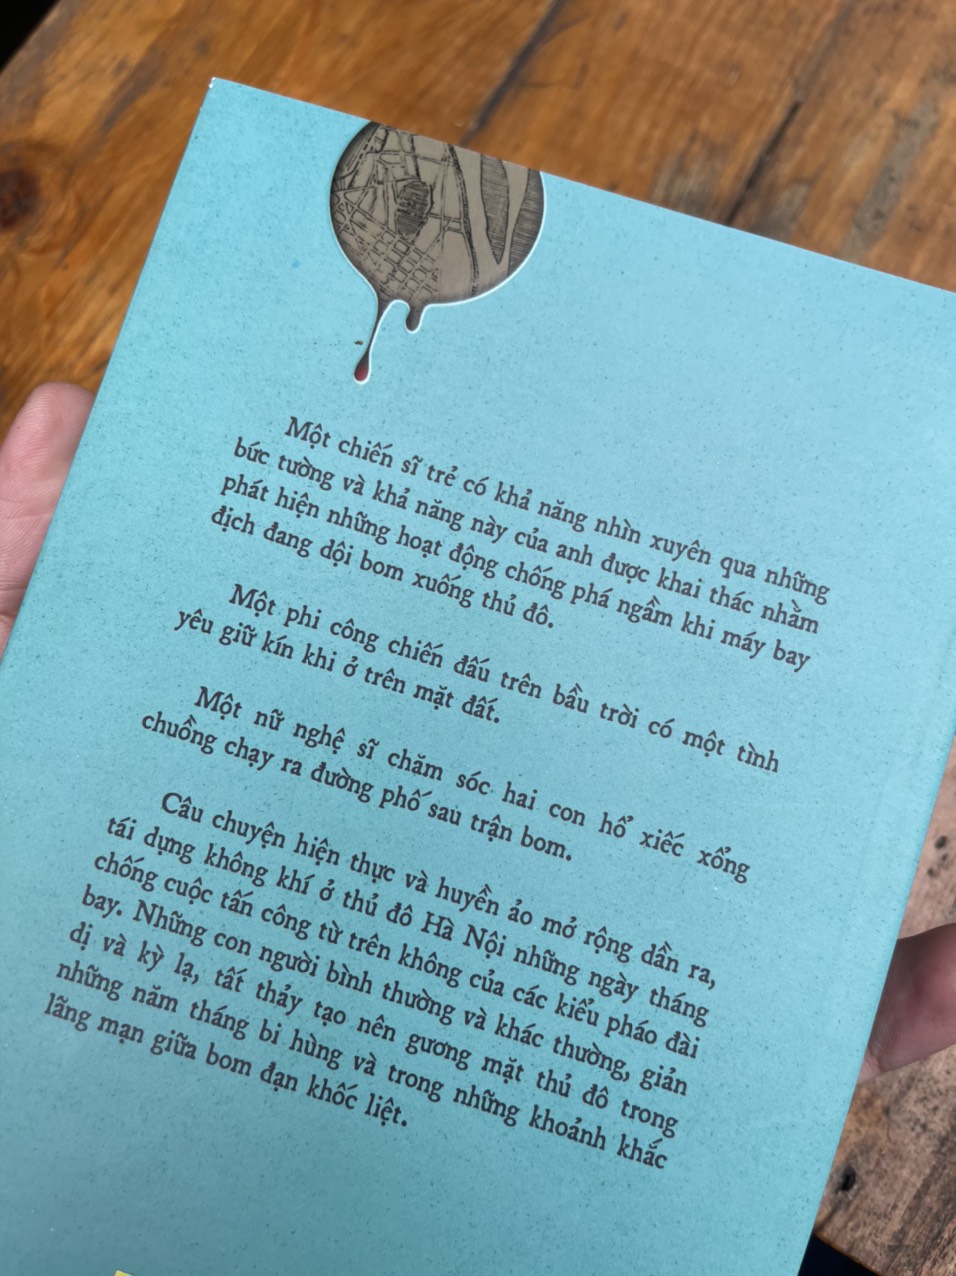 Một chiến sĩ trẻ có khả năng nhìn xuyên qua những
bức tường và khả năng này của anh được khai thác nhằm
phát hiện những hoạt động chống phá ngầm khi máy bay
địch đang dội bom xuống thủ đô.
Một phi công chiến đấu trên bầu trời có một tình
yêu giữ kín khi ở trên mặt đất.
Một nữ nghệ sĩ chăm sóc hai con hổ xiếc xổng
chuồng chạy ra đường phố sau trận bom.
Câu chuyện hiện thực và huyền ảo mở rộng dần ra,
tái dựng không khí ở thủ đô Hà Nội những ngày tháng
chống cuộc tấn công từ trên không của các kiểu pháo đài
bay. Những con người bình thường và khác thường, giản
dị và kỳ lạ, tất thảy tạo nên gương mặt thủ đô trong
những năm tháng bi hùng và trong những khoảnh khắc
lãng mạn giữa bom đạn khốc liệt.